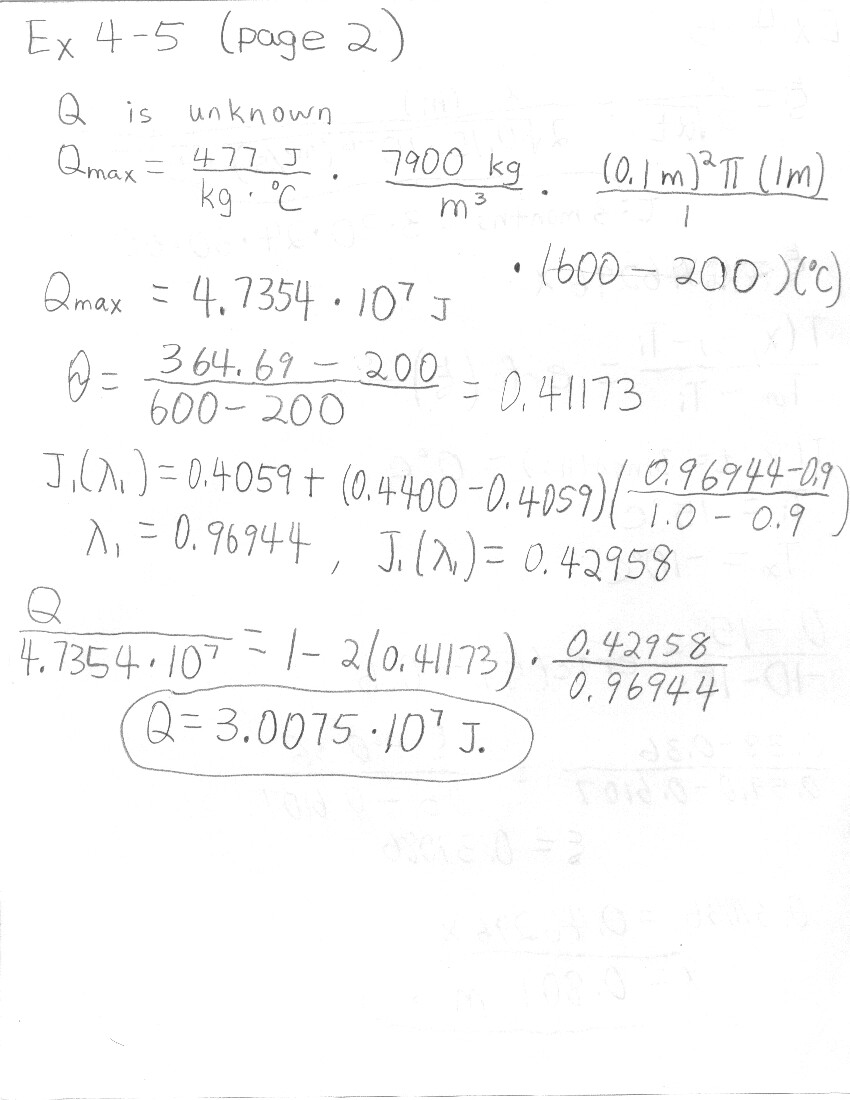 Ex 4-5 (page 2)
Q is unknown
Qmax = 477 J / kg · °C · 7900 kg / m³ · (0.1 m)² π (1m) / 1
· (600 - 200)(°C)
Qmax = 4.7354 · 10⁷ J
θ = 364.69 - 200 / 600 - 200 = 0.41173
J₁(λ₁) = 0.4059 + (0.4400 - 0.4059)(0.96944 - 0.9 / 1.0 - 0.9)
λ₁ = 0.96944, J₁(λ₁) = 0.42958
Q / 4.7354 · 10⁷ = 1 - 2(0.41173) · 0.42958 / 0.96944
Q = 3.0075 · 10⁷ J.